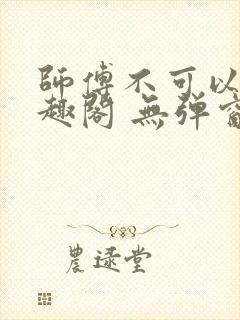 師傅不可以
趣閣 無弹窗
農逯堂